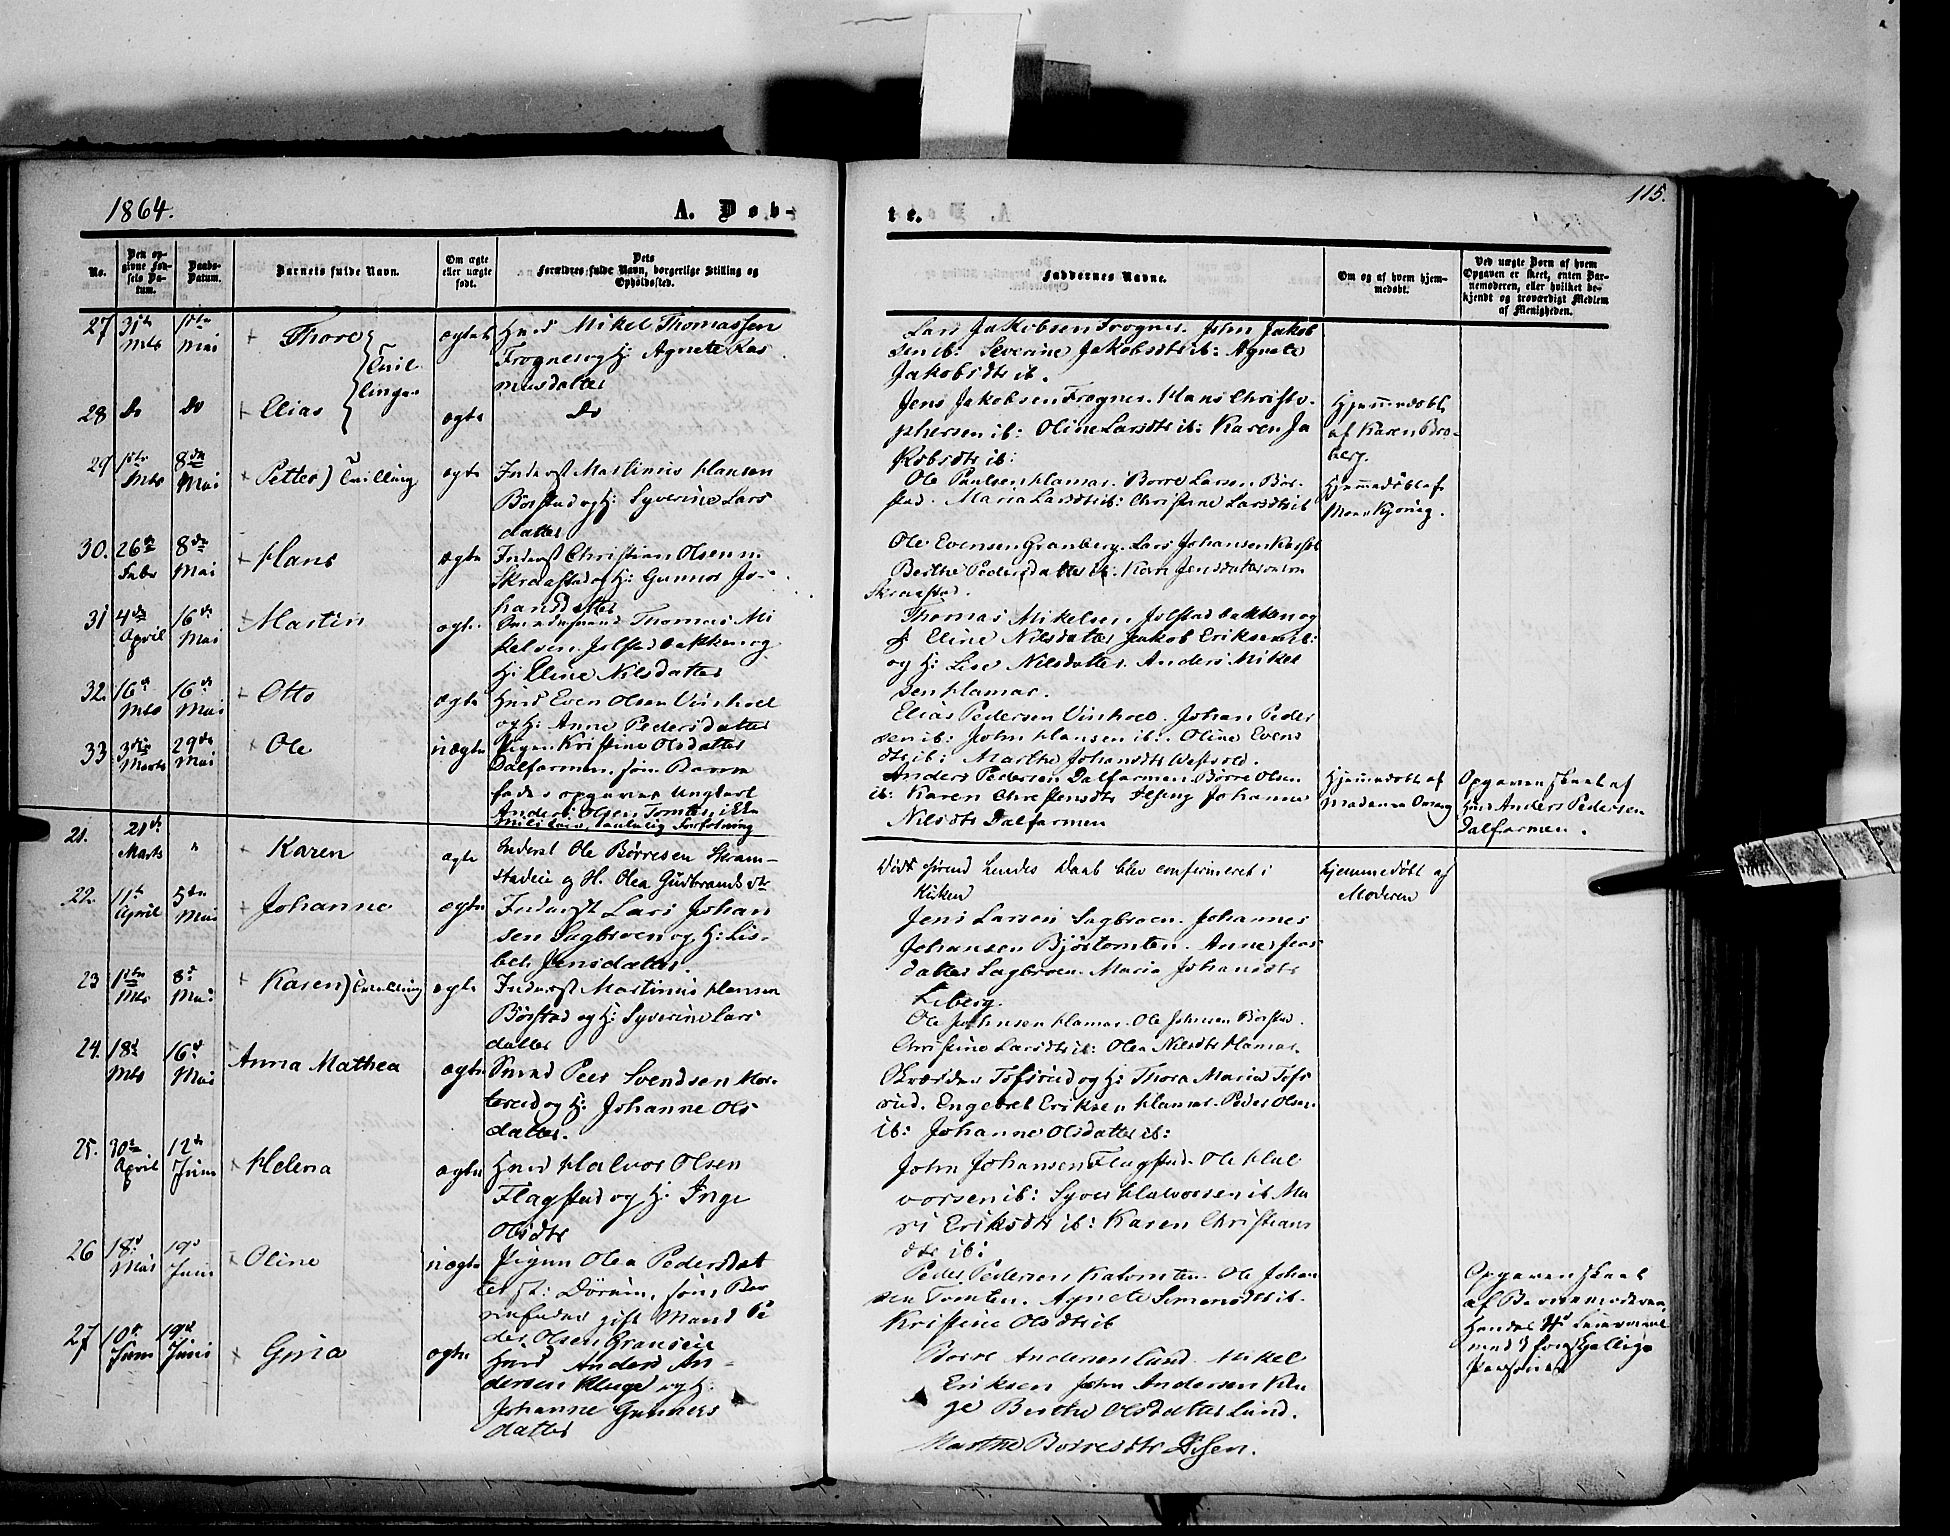 1864.
A. Døb-
te.
115.
No.
Den opgivne Fødsels Datum.
Daabs-Datum.
Barnets fulde Navn.
Om ægte eller uægte født.
Dets Forældres fulde Navn, borgerlige Stilling og Opholdssted.
Faddernes Navne.
Om og af hvem hjemmedøbt.
Ved uægte Børn af hvem Opgaven er skeet, enten Barnemoderen, eller hvilket bekjendt og troværdigt Medlem af Menigheden.
27 31te Mts 1ste Mai Thore Tvil
lingar
ægte Husd Mikel Thomassen
Frogner og H: Agnete Ras
musdatter
Lars Jakobsen Frogner. John Jakob
sen ib: Severine Jakobsdtr ib: Agnete
Jakobsdtr ib.
28 Do Do Elias ægte Do
Jens Jakobsen Frogner. Hans Christo-
phersen ib: Oline Larsdtr ib: Karen Ja
kobsdtr ib:
Hjemmedøbt
af Karen Bro-
berg.
29 1ste Mts 8de Mai Petter) Tvilling ægte Inderst Martinus Hansen
Børstad og H: Syverine Lars
datter
Ole Paulsen Hamar. Borre Larsen Bør-
stad. Maria Larsdtr ib: Christine Larsdtr ib
Hjemmedøbt af
30. 26de Febr 8de Mai Hans ægte Inderst Christian Olsen
Skraastad og H: Gunnor Jo-
hansdatter
Ole Evensen Granberg. Lars Johansen
Berthe Pedersdatter ib. Kari Jensdatter
Skraastad.
31 4de April 16de Mai Martin ægte Gaardmand Thomas Mi
kelsen Jølstadbakken og
H: Eline Nilsdatter
Thomas Mikelsen Jølstadbakken og
H Eline Nilsdatter Jakob Eriksen ib:
og H: Lise Nilsdatter. Anders Mikel
sen Hamar.
32. 16de Mts 16de Mai Otto ægte Husd Even Olsen Vinhoel
og H: Anne Pedersdatter
Elias Pedersen Vinhoel. Johan Peder
sen ib: John Hansen ib: Oline Evens
dtr ib: Marthe Johansdtr Westvold.
33 3die Marts 29de Mai Ole uægte Pigen Kristine Olsdatter
Dalfarmen, som Barne
fader opgives Ungkarl
Anders Olsen Tomten ikke
militair, samtidig Forlovning
Anders Pedersen Dalfarmen. Børre Olsen
ib: Karen Christensdtr Johanne
Nilsdtr Dalfarmen
Hjemmedøbt af
Madame
Opgaven skeet af
Husd Anders Pedersen
Dalfarmen.
21. 21de Marts " Karen ægte Inderst Ole Børresen Skram-
stadeie og H. Olea Gudbrandsdtr
Død forend hendes Daab blev confirmeret i
Kirken
hjemmedøbt af
Moderen
22. 11te April 5te Mai Johanne ægte Inderst Lars Johan
sen Sagbroen og H: Lis-
beth Jensdatter.
Jens Larsen Sagbroen. Johannes
Johansen Bjørtomten. Anne Jens
datter Sagbroen. Maria Johansdtr
Liberg.
23 1ste Mts 8d Mai Karen) Tvilling ægte Inderst Martinus Hansen
Børstad og H: Syverine Lars
datter
Ole Johnsen Hamar. Ole Johnsen Børstad.
Christine Larsdtr ib: Olea Nilsdtr Hamar.
24. 18d Mts 16d Mai Anna Mathea ægte Smed Peer Svendsen
og H: Johanne Ols
datter.
Tofsrud og H: Thora Maria Tofs
rud. Engebret Eriksen Hamar. Peder Olsen
ib: Johanne Olsdatter ib:
25. 30te April 12te Juni Helena ægte Husd Halvor Olsen
Flagstad og H: Inge
Olsdtr
John Johansen Flagstad. Ole Hal
vorsen ib: Syver Halvorsen ib Ma
ri Eriksdtr ib: Karen Christians
dtr ib:
26 18d Mai 19d Juni Oline uægte Pigen Olea Pedersdat
ter st: Dørum, som Bar
nefader gift Mand Pe
der Olsen Granseie
Peder Pedersen Kalvomten. Ole Johan
sen Tomten. Agnete Simensdtr ib.
Kristine Olsdtr ib
Opgaven skeet
af Barnemoderen,
Hendes 4d Leiermaal
med 3 forskjellige
Personer
27 10de Juni 19de Juni Gina ægte Husd Anders An-
dersen Kluge og H:
Johanne Gunners
datter
Borre Andersen Lund. Mikel
Eriksen John Andersen Klu
ge Berthe Olsdatter Lund.
Marthe Borresdtr